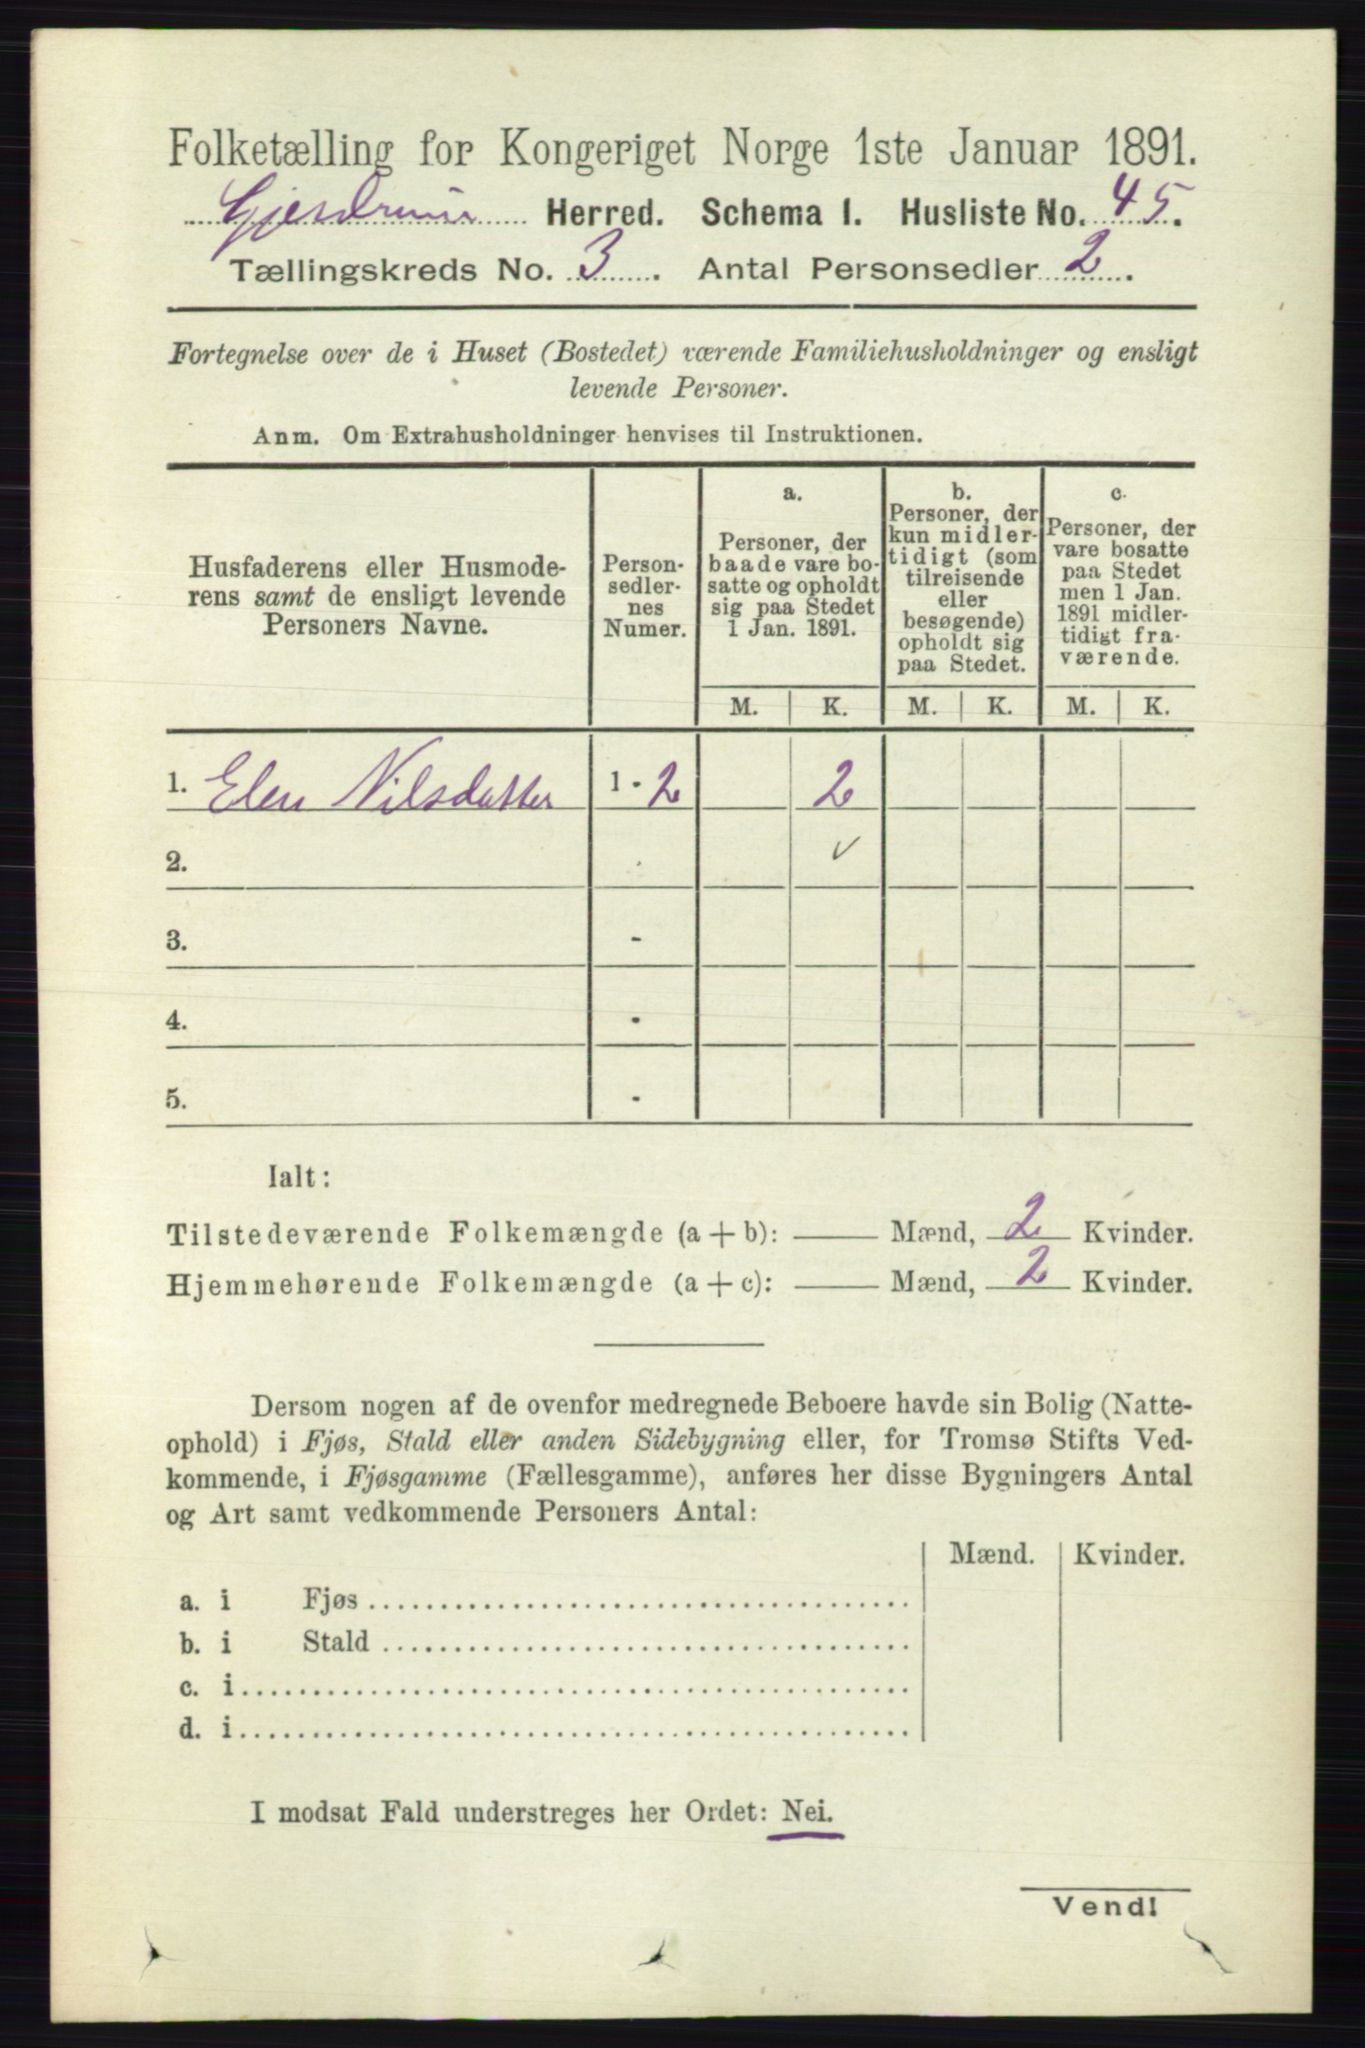 Folketælling for Kongeriget Norge 1ste Januar 1891.
Gjerdrum Herred. Schema I. Husliste No. 45.
Tællingskreds No. 3. Antal Personsedler 2.
Fortegnelse over de i Huset (Bostedet) værende Familiehusholdninger og ensligt
levende Personer.
Anm. Om Extrahusholdninger henvises til Instruktionen.
Husfaderens eller Husmode-
rens samt de ensligt levende
Personers Navne.
Person-
sedler-
nes
Numer.
a.
Personer, der
baade vare bo-
satte og opholdt
sig paa Stedet
1 Jan. 1891.
b.
Personer, der
kun midler-
tidigt (som
tilreisende
eller
besøgende)
opholdt sig
paa Stedet.
c.
Personer, der
vare bosatte
paa Stedet
men 1 Jan.
1891 midler-
tidigt fra-
værende.
M. K. M. K. M. K.
1. Elen Nilsdatter 1 - 2 2
2. ✓
3. -
4. -
5. -
Ialt:
Tilstedeværende Folkemængde (a + b): — Mænd, 2 Kvinder.
Hjemmehørende Folkemængde (a + c): — Mænd, 2 Kvinder.
Dersom nogen af de ovenfor medregnede Beboere havde sin Bolig (Natte-
ophold) i Fjøs, Stald eller anden Sidebygning eller, for Tromsø Stifts Ved-
kommende, i Fjøsgamme (Fællesgamme), anføres her disse Bygningers Antal
og Art samt vedkommende Personers Antal:
Mænd. Kvinder.
a. i Fjøs
b. i Stald
c. i
d. i
I modsat Fald understreges her Ordet: Nei.
Vend!